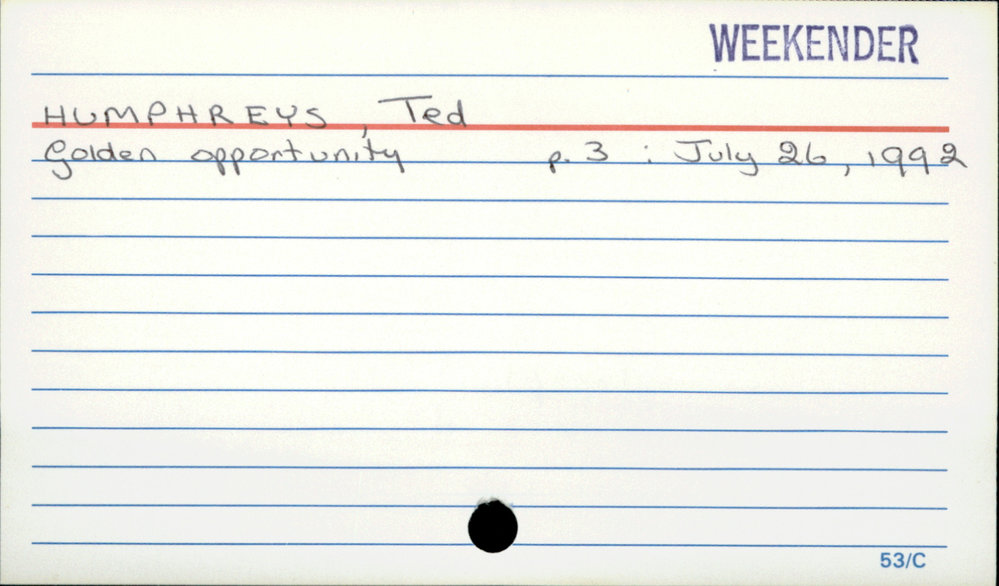 WEEKENDER
HUMPHREYS, Ted
Golden opportunity p. 3 : July 26, 1992
53/C